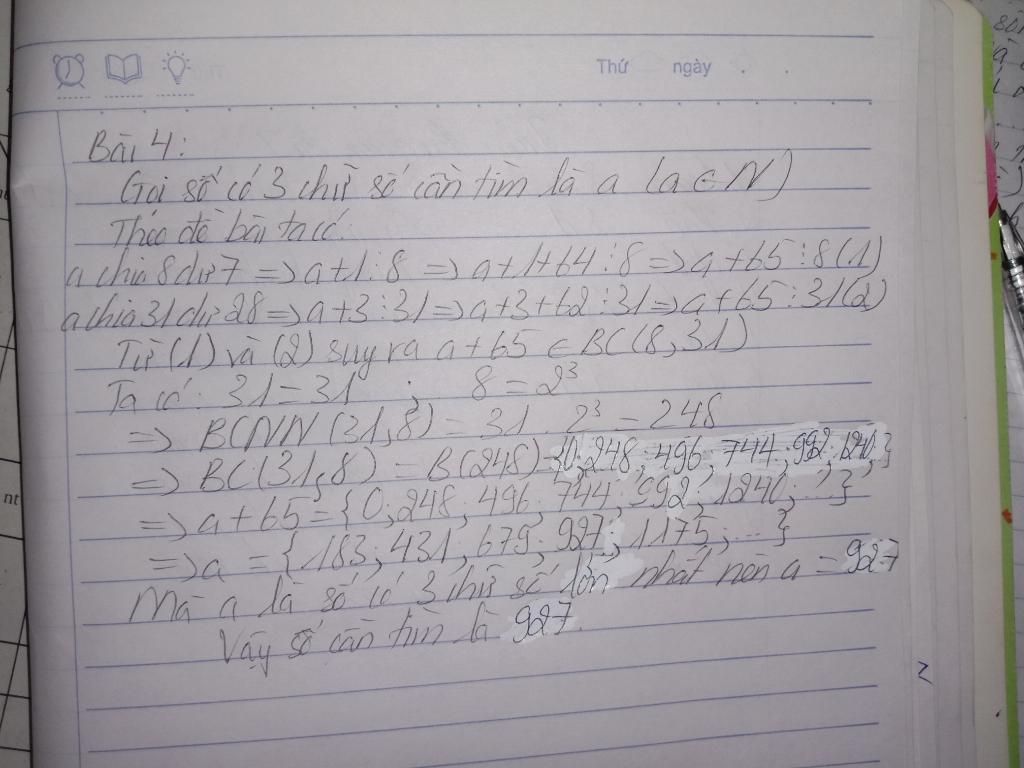 Thứ ngày . .
Bài 4:
Gọi số có 3 chữ số cần tìm là a (a ∈ N)
Theo đề bài ta có:
a chia 8 dư 7 => a+1⋮8 => a+1+64⋮8 => a+65⋮8 (1)
a chia 31 dư 28 => a+3⋮31 => a+3+62⋮31 => a+65⋮31 (2)
Từ (1) và (2) suy ra a+65 ∈ BC(8,31)
Ta có: 31=31 ; 8=2³
=> BCNN(31,8) = 31.2³ = 248
=> BC(31,8) = B(248)={0;248;496;744;992;1240;}
=> a+65={0,248,496,744,992,1240,...}
=> a = {183;431;679;927;1175;...}
Mà a là số có 3 chữ số lớn nhất nên a = 927
Vậy số cần tìm là 927.